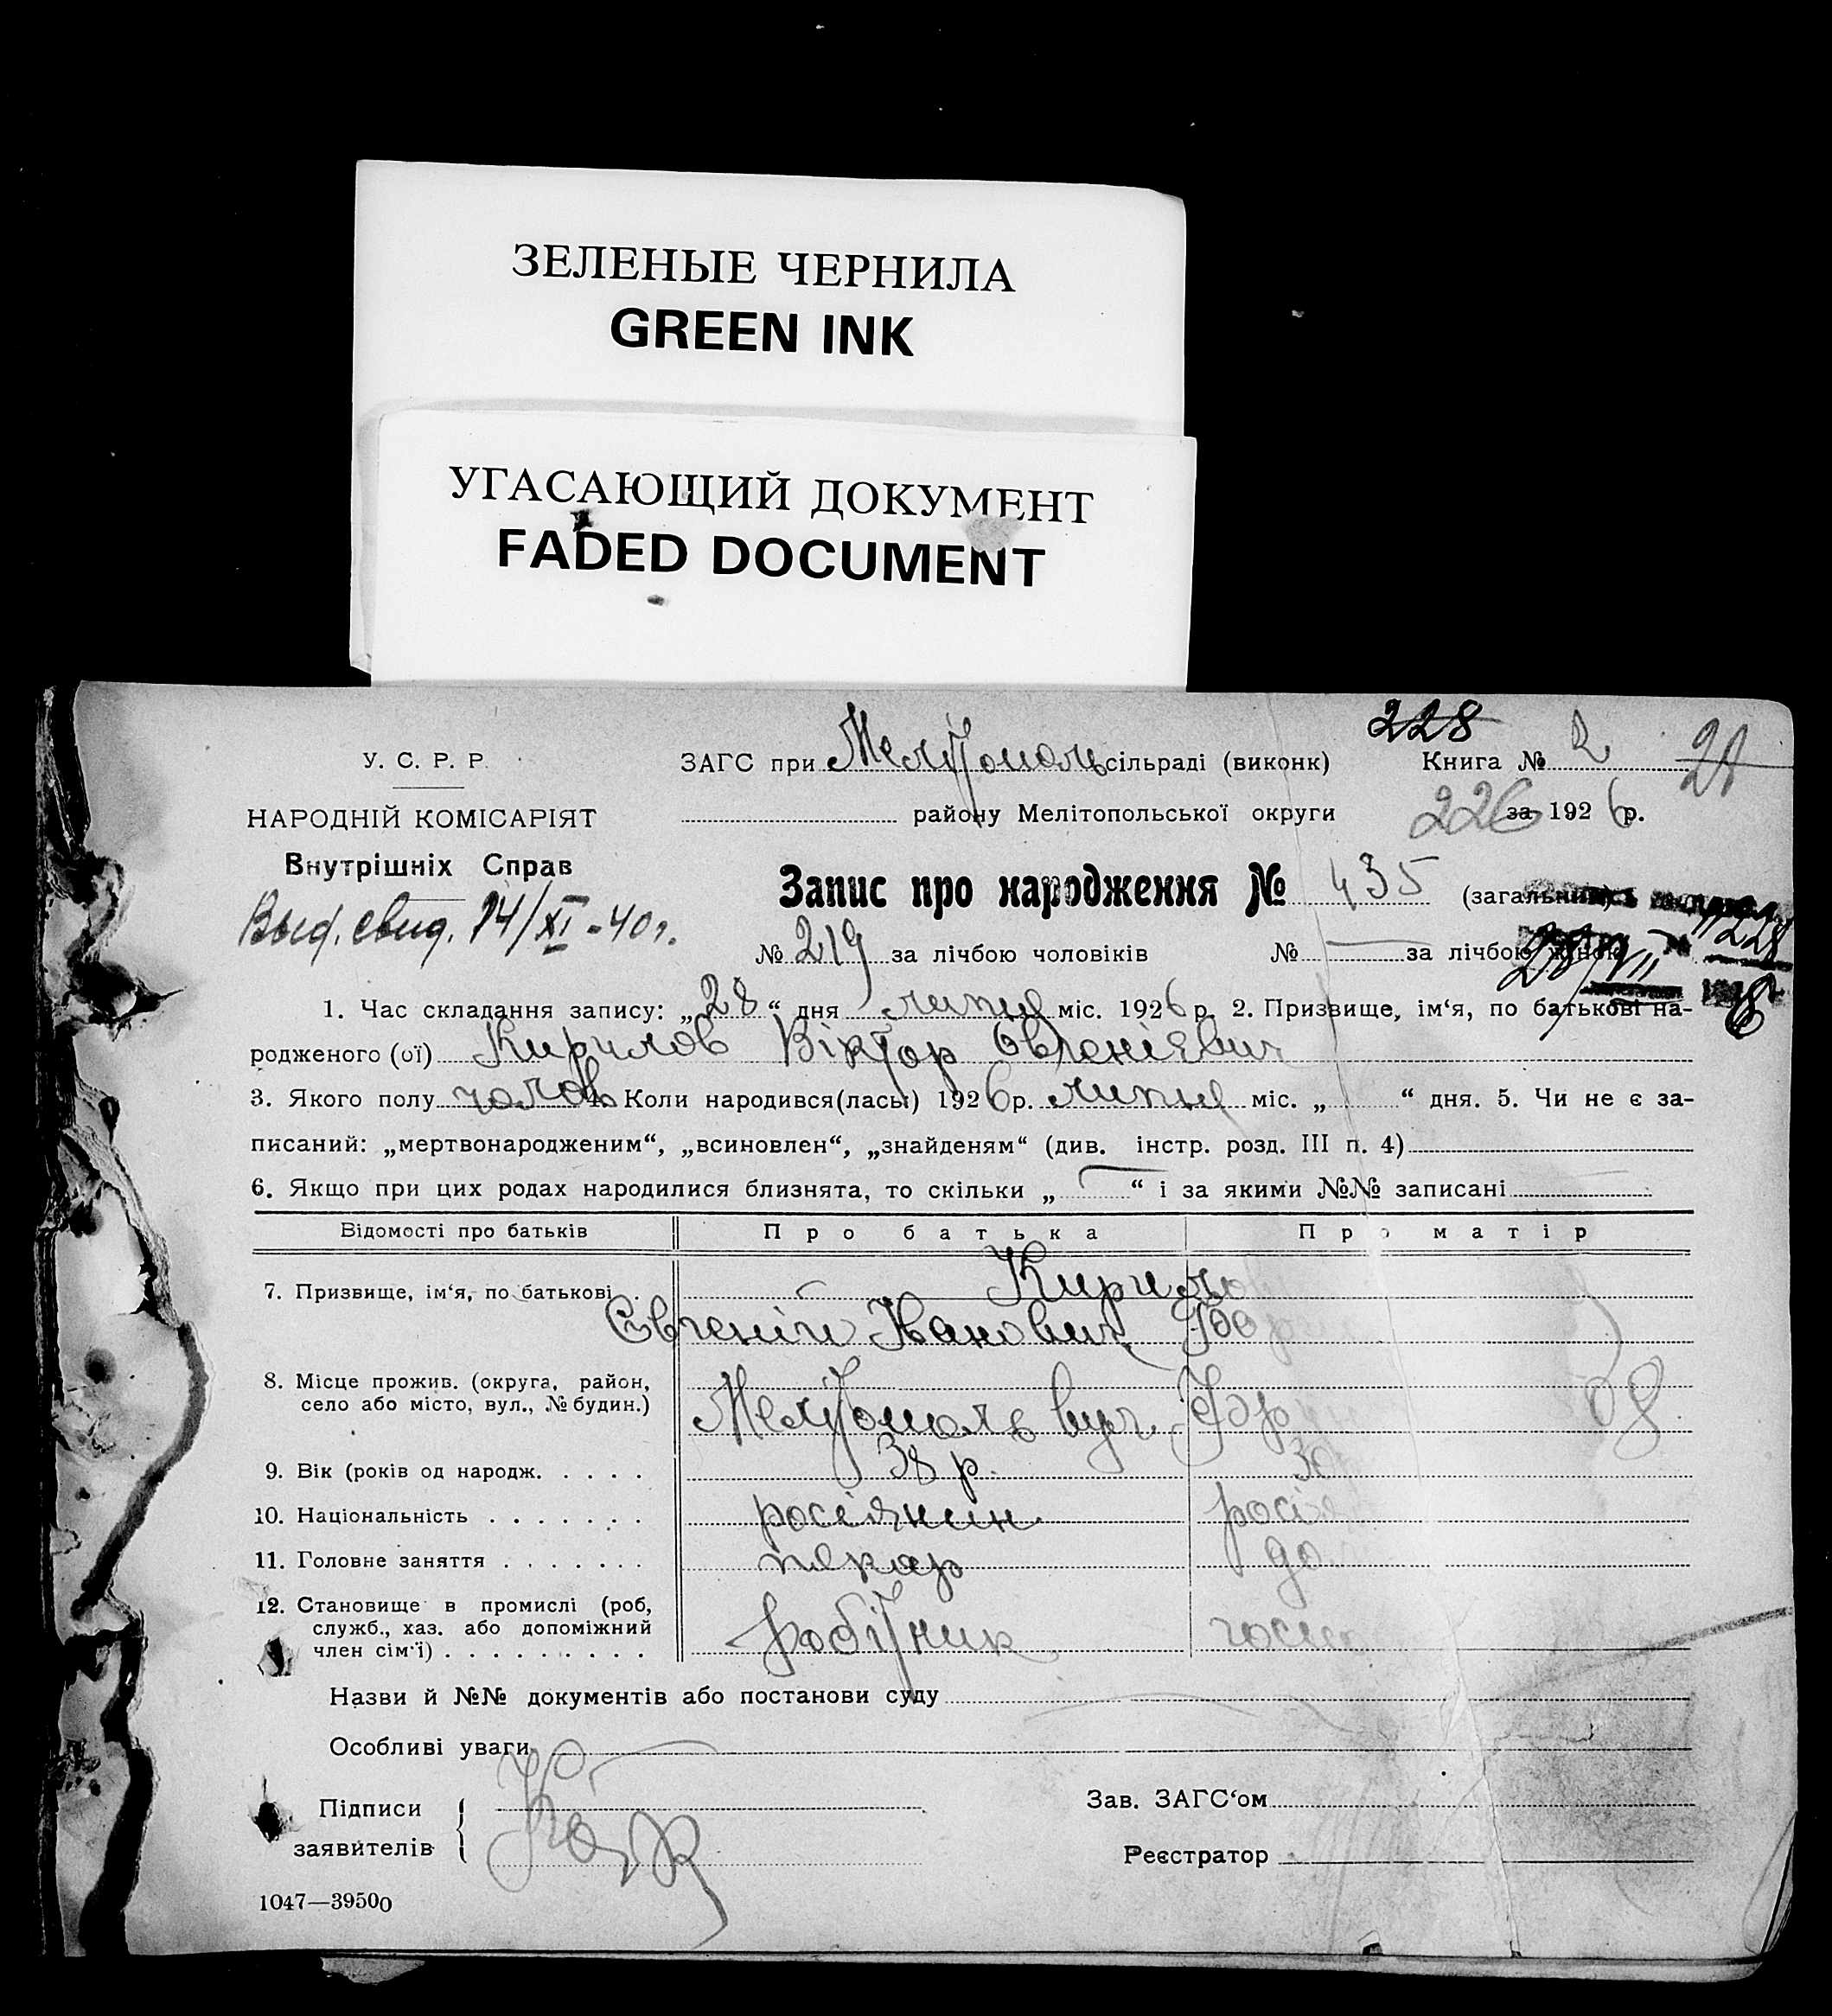 ЗЕЛЕНЫЕ ЧЕРНИЛА
GREEN INK
УГАСАЮЩИЙ ДОКУМЕНТ
FADED DOCUMENT
228
У. С. Р. Р. ЗАГС при Мелітополь сільраді (виконк) Книга № 2
28
НАРОДНІЙ КОМІСАРІЯТ району Мелітопольської округи 226 за 1926 р.
Внутрішніх Справ
Запис про народження № 435 (загальний)
Выд. свид. 14/XI-40 г.
№ 219 за лічбою чоловіків № за лічбою жінок
28/VII 228
1. Час складання запису: „28“ дня липня міс. 1926 р. 2. Призвище, ім‘я, по батькові на-
родженого (ої) Кирилов Віктор Овгенієвич
3. Якого полу чолов 4. Коли народився(лась) 1926 р. липня міс. „ “ дня. 5. Чи не є за-
писаний: „мертвонародженим“, „всиновлен“, „знайденям“ (див. інстр. розд. III п. 4)
6. Якщо при цих родах народилися близнята, то скільки „ “ і за якими №№ записані
Відомості про батьків Про батька Про матір
7. Призвище, ім‘я, по батькові Кирило
Євгеній Іванович
8. Місце прожив. (округа, район,
село або місто, вул., № будин.) Мелітополь вул. 08
9. Вік (років од народж. 38 р. 30
10. Національність росіянин росі
11. Головне заняття пекар до
12. Становище в промислі (роб,
служб., хаз. або допоміжний робітник госп
член сім‘ї)
Назви й №№ документів або постанови суду
Особливі уваги
Підписи Зав. ЗАГС‘ом
заявителів Реєстратор
1047—39500